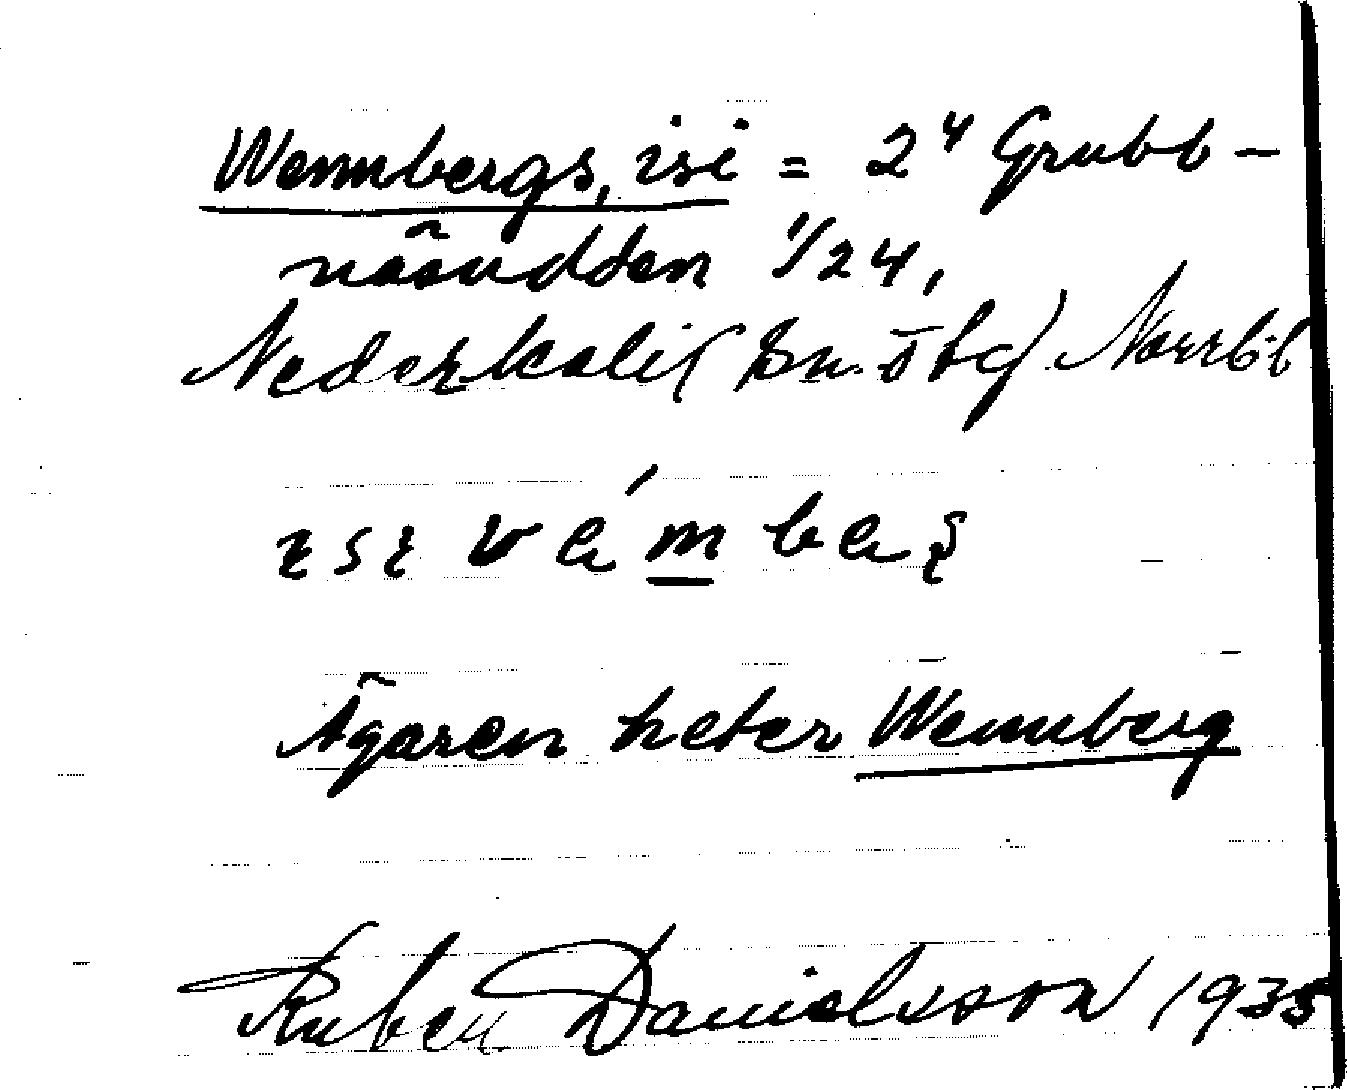 Wennbergs, isi = 2⁴ Grubb-
näsudden 1/24,
Nederkalix sn. Norrb.l
Ägaren heter Wennberg
Ruben Danielsson 1935